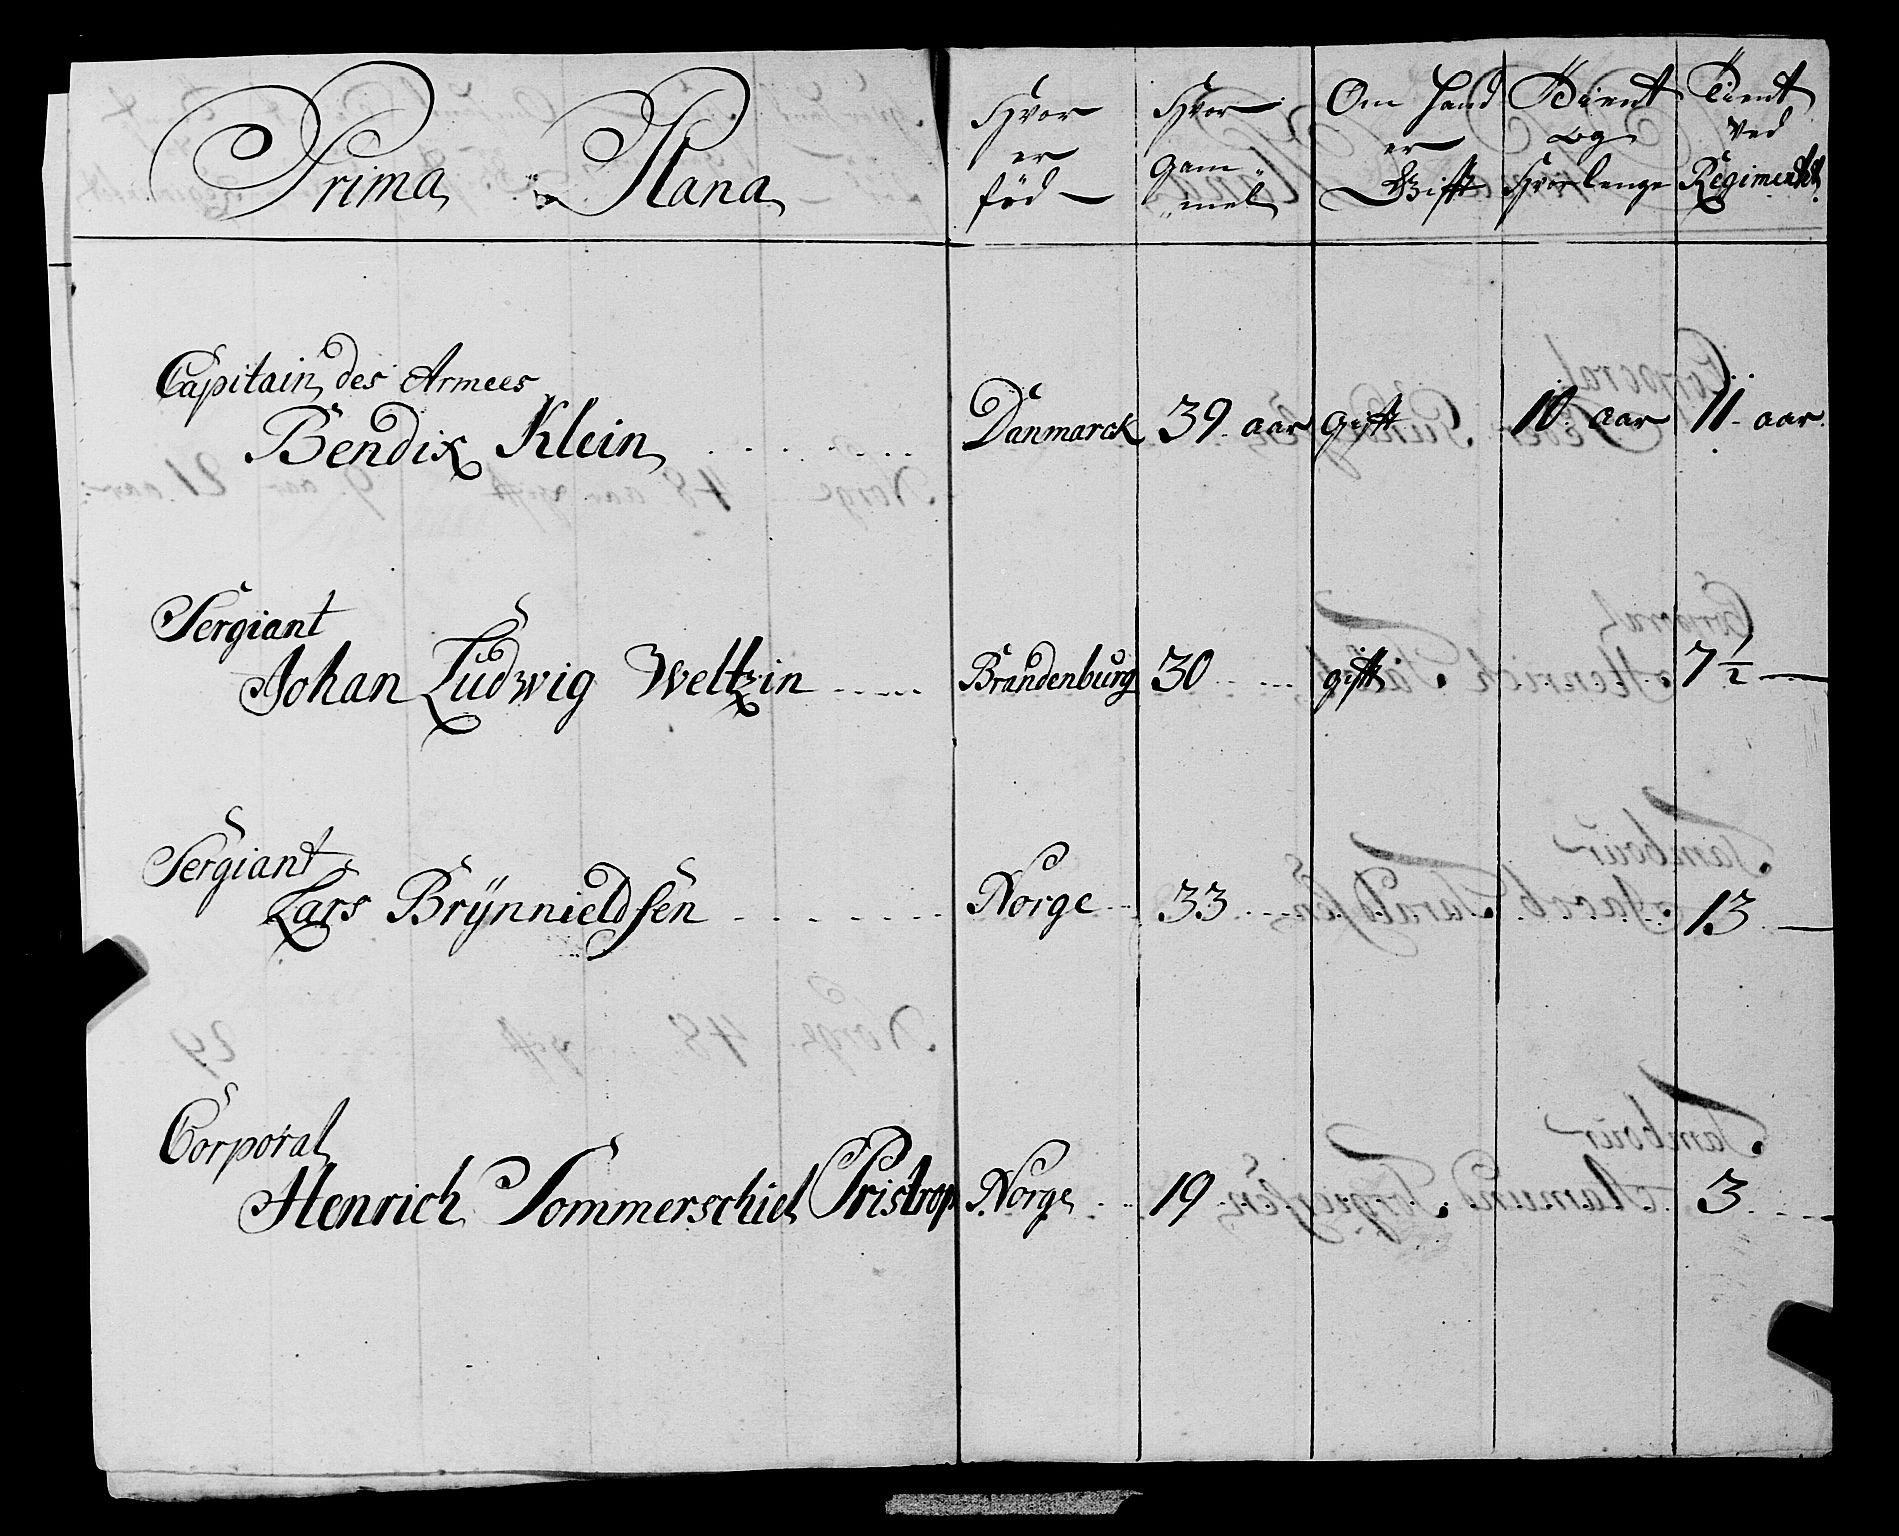 Prima Plana
Hvor er föd
Hvor Gammel
Om hand er Gifft
Tient og Hvorlenge
Tient ved Regimentet
Capitain des Armees
Bendix Klein Danmarck 39 aar gifft 10 aar 11 aar
Sergiant
Johan Ludwig Weltzin Brandenburg 30 gifft 7 1/2
Sergiant
Lars Brÿnnieldsen Norge 33 13
Corporal
Henrich Sommerschiel Pristrop Norge 19 3